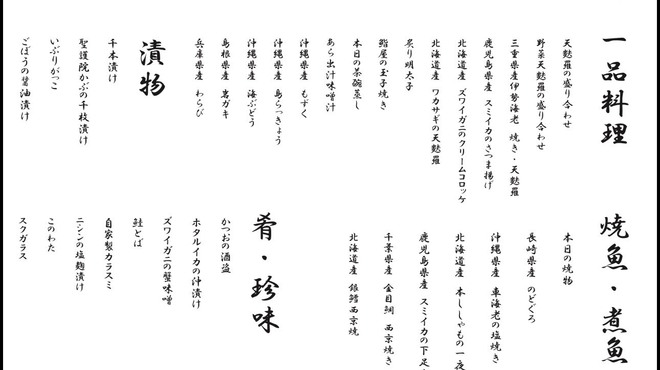 一品料理
天麩羅の盛り合わせ
野菜天麩羅の盛り合わせ
三重県産伊勢海老 焼き・天麩羅
鹿児島県産 スミイカのさつま揚げ
北海道産 ズワイガニのクリームコロッケ
北海道産 ワカサギの天麩羅
炙り明太子
鮨屋の玉子焼き
本日の茶碗蒸し
あら出汁味噌汁
沖縄県産 もずく
沖縄県産 島らっきょう
沖縄県産 海ぶどう
島根県産 岩ガキ
兵庫県産 わらび
漬物
千本漬け
聖護院かぶの千枚漬け
いぶりがっこ
ごぼうの醤油漬け
焼魚・煮魚
本日の焼物
長崎県産 のどぐろ
沖縄県産 車海老の塩焼き
北海道産 本ししゃもの一夜
鹿児島県産 スミイカの下足
千葉県産 金目鯛 西京焼き
北海道産 銀鱈西京焼
肴・珍味
かつおの酒盗
ホタルイカの沖漬け
ズワイガニの蟹味噌
鮭とば
自家製カラスミ
ニシンの塩麹漬け
このわた
スクガラス